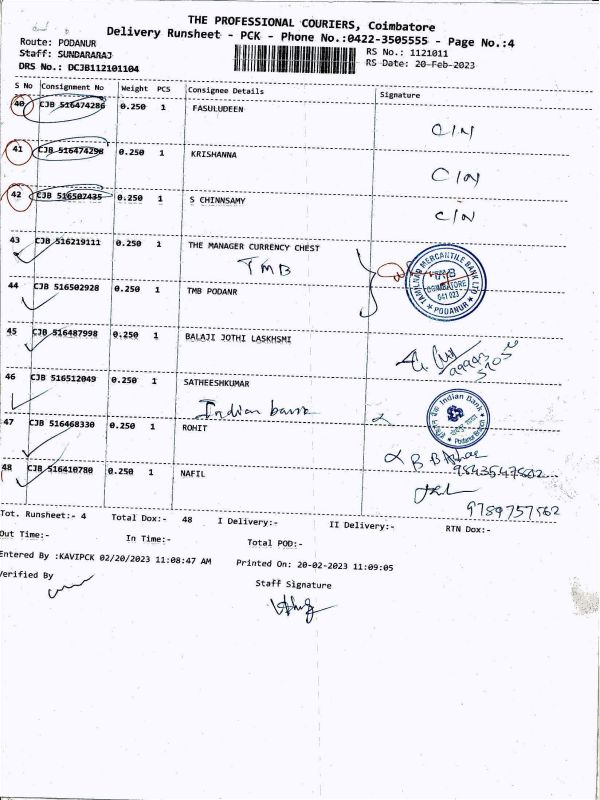 THE PROFESSIONAL COURIERS, Coimbatore
Delivery Runsheet - PCK - Phone No.:0422-3505555 - Page No.:4
Route: PODANUR
RS No.: 1121011
Staff: SUNDARARAJ
RS Date: 20-Feb-2023
DRS No.: DCJB112101104
S No Consignment No Weight PCS Consignee Details Signature
40 CJB 516474286 0.250 1 FASULUDEEN
C/N
41 CJB 516474298 0.250 1 KRISHANNA
C/N
42 CJB 516507435 0.250 1 S CHINNSAMY
C/N
43 CJB 516219111 0.250 1 THE MANAGER CURRENCY CHEST
TMB
TAMILNAD MERCANTILE BANK LTD
COIMBATORE
641 023
PODANUR
44 CJB 516502928 0.250 1 TMB PODANR
45 CJB 516487998 0.250 1 BALAJI JOTHI LASKHSMI
46 CJB 516512049 0.250 1 SATHEESHKUMAR
Indian bank
Indian Bank
Podanur Branch
47 CJB 516468330 0.250 1 ROHIT
48 CJB 516410780 0.250 1 NAFIL
9789757562
Tot. Runsheet:- 4 Total Dox:- 48 I Delivery:- II Delivery:- RTN Dox:-
Out Time:- In Time:- Total POD:-
Entered By :KAVIPCK 02/20/2023 11:08:47 AM Printed On: 20-02-2023 11:09:05
Verified By
Staff Signature